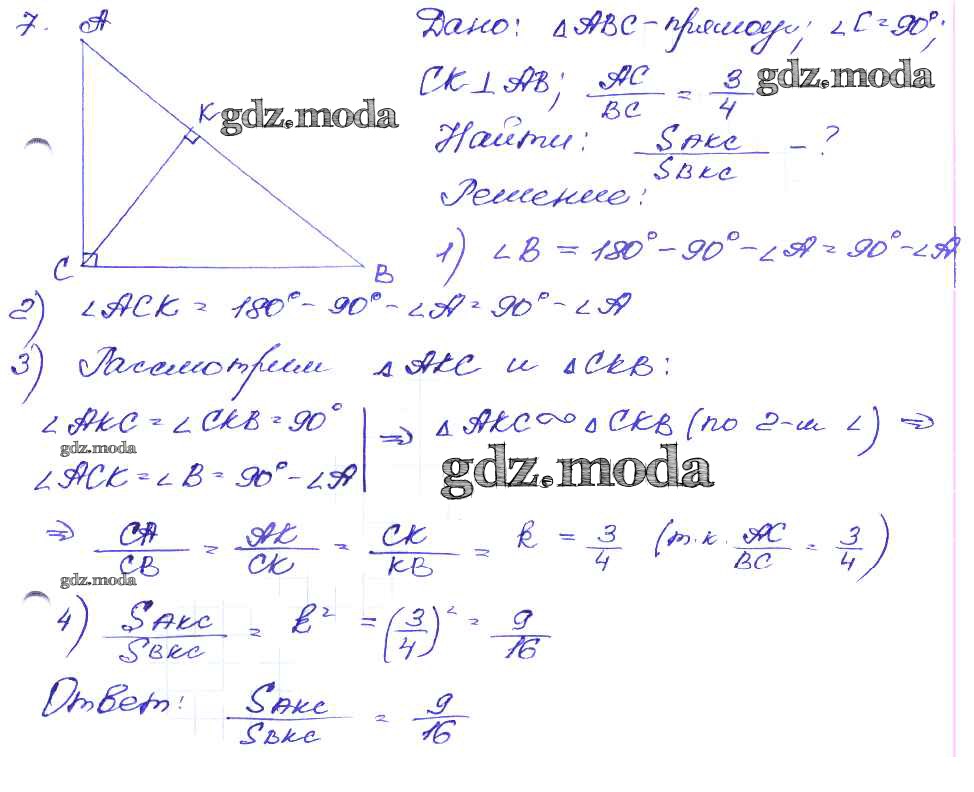 7. A
Дано: △ABC - прямоуг; ∠C = 90°;
K gdz.moda
CK ⊥ AB; AC/BC = 3/4 gdz.moda
Найти: S AKC / S BKC - ?
Решение:
1) ∠B = 180° - 90° - ∠A = 90° - ∠A
C B
2) ∠ACK = 180° - 90° - ∠A = 90° - ∠A
3) Рассмотрим △AKC и △CKB:
∠AKC = ∠CKB = 90° | ⇒ △AKC ∞ △CKB (по 2-м ∠) ⇒
gdz.moda
∠ACK = ∠B = 90° - ∠A
gdz.moda
⇒ CA/CB = AK/CK = CK/KB = k = 3/4 (т.к. AC/BC = 3/4)
gdz.moda
4) S AKC / S BKC = k² = (3/4)² = 9/16
Ответ: S AKC / S BKC = 9/16